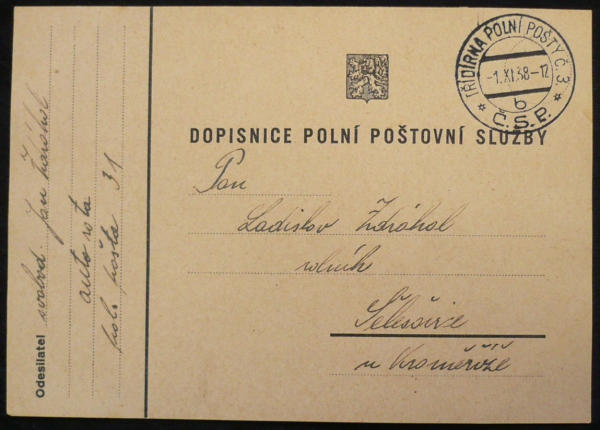 TŘÍDÍRNA POLNÍ POŠTY Č. 3.
-1.XI.38-12
b
Č.S.P.
DOPISNICE POLNÍ POŠTOVNÍ SLUŽBY
Pan
Ladislav Zdráhal
rolník
Šelešovice
u Kroměříže
Odesílatel
svobod Jan
auto rota
pol. pošta 31